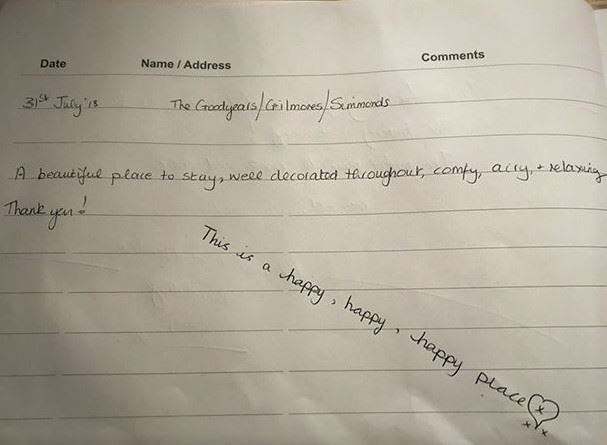 Date Name / Address Comments
31st July '18 The Goodyears/Gilmores/Simmonds
A beautiful place to stay, well decorated throughout, comfy, airy, + relaxing
Thank you!
This is a happy, happy, happy place